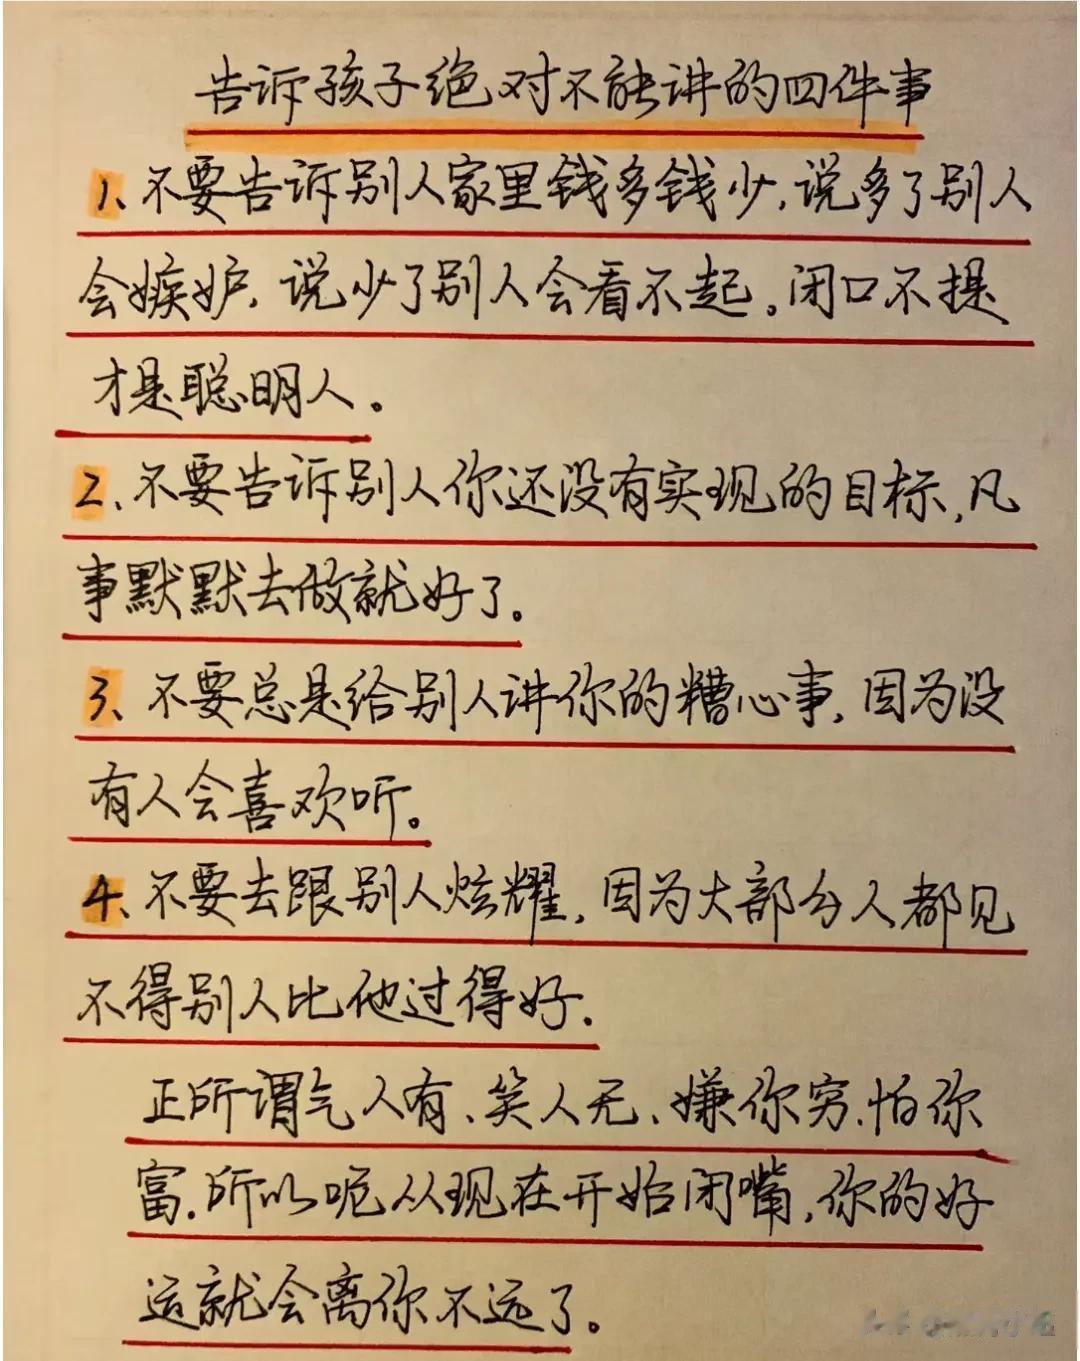 告诉孩子绝对不能讲的四件事
1、不要告诉别人家里钱多钱少,说多了别人
会嫉妒,说少了别人会看不起。闭口不提
才是聪明人。
2、不要告诉别人你还没有实现的目标,凡
事默默去做就好了。
3、不要总是给别人讲你的糟心事,因为没
有人会喜欢听。
4、不要去跟别人炫耀,因为大部分人都见
不得别人比他过得好.
正所谓气人有、笑人无、嫌你穷.怕你
富.所以呢从现在开始闭嘴,你的好
运就会离你不远了。